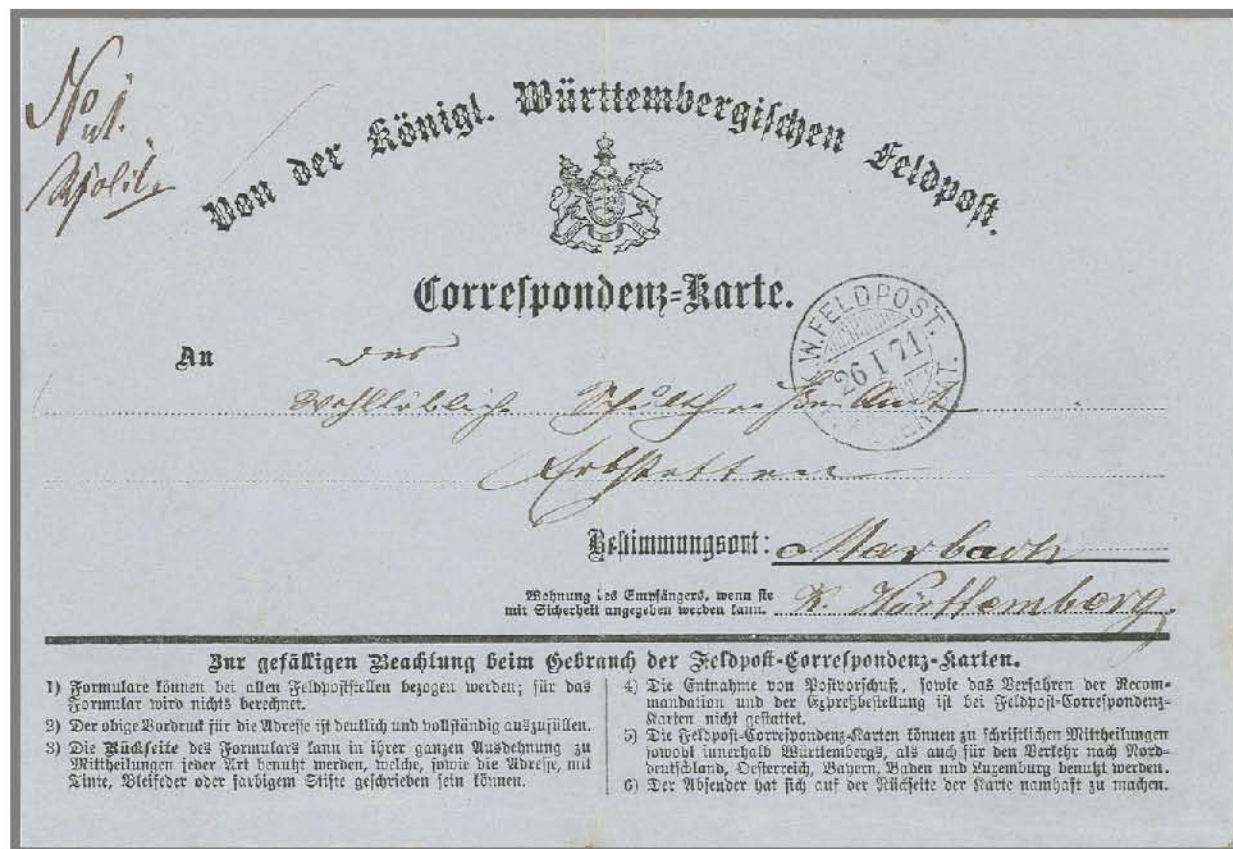 No 1.
Von der Königl. Württembergischen Feldpost.
Correspondenz-Karte.
K.W.FELDPOST.
26 I 71
An das
Wohllöbliche Schultheißenamt
Erbstetten
Bestimmungsort: Marbach
Wohnung des Empfängers, wenn sie
mit Sicherheit angegeben werden kann. K. Württemberg.
Zur gefälligen Beachtung beim Gebrauch der Feldpost-Correspondenz-Karten.
1) Formulare können bei allen Feldpoststellen bezogen werden; für das
Formular wird nichts berechnet.
2) Der obige Vordruck für die Adresse ist deutlich und vollständig auszufüllen.
3) Die Rückseite des Formulars kann in ihrer ganzen Ausdehnung zu
Mittheilungen jeder Art benutzt werden, welche, sowie die Adresse, mit
Tinte, Bleifeder oder farbigem Stifte geschrieben sein können.
4) Die Entnahme von Postvorschuß, sowie das Verfahren der Recom-
mandation und der Expreßbestellung ist bei Feldpost-Correspondenz-
Karten nicht gestattet.
5) Die Feldpost-Correspondenz-Karten können zu schriftlichen Mittheilungen
sowohl innerhalb Württembergs, als auch für den Verkehr nach Nord-
deutschland, Oesterreich, Bayern, Baden und Luxemburg benutzt werden.
6) Der Absender hat sich auf der Rückseite der Karte namhaft zu machen.